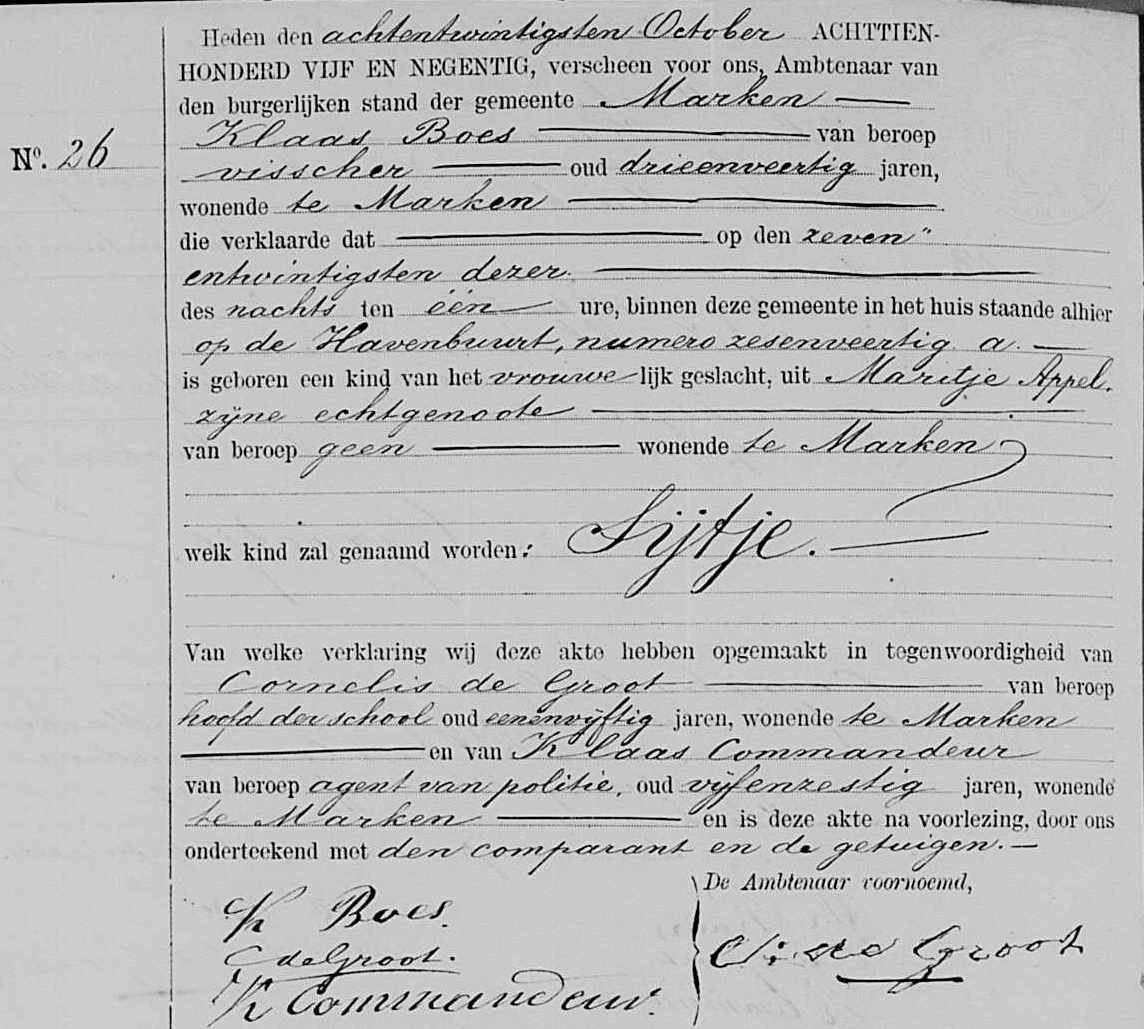 Heden den achtentwintigsten October ACHTTIEN-
HONDERD VIJF EN NEGENTIG, verscheen voor ons, Ambtenaar van
den burgerlijken stand der gemeente Marken
Klaas Boes van beroep
No. 26
visscher oud drieenveertig jaren,
wonende te Marken
die verklaarde dat op den zeven"
entwintigsten dezer.
des nachts ten één ure, binnen deze gemeente in het huis staande alhier
op de Havenbuurt, numero zesenveertig a.
is geboren een kind van het vrouwelijk geslacht, uit Maritje Appel.
zijne echtgenoote
van beroep geen wonende te Marken
welk kind zal genaamd worden: Sijtje.
Van welke verklaring wij deze akte hebben opgemaakt in tegenwoordigheid van
Cornelis de Groot van beroep
hoofd der school oud eenenvijftig jaren, wonende te Marken
en van Klaas Commandeur
van beroep agent van politie, oud vijfenzestig jaren, wonende
te Marken en is deze akte na voorlezing, door ons
onderteekend met den comparant en de getuigen.
De Ambtenaar voornoemd,
K Boes.
C de Groot.
K Commandeur.
de Groot